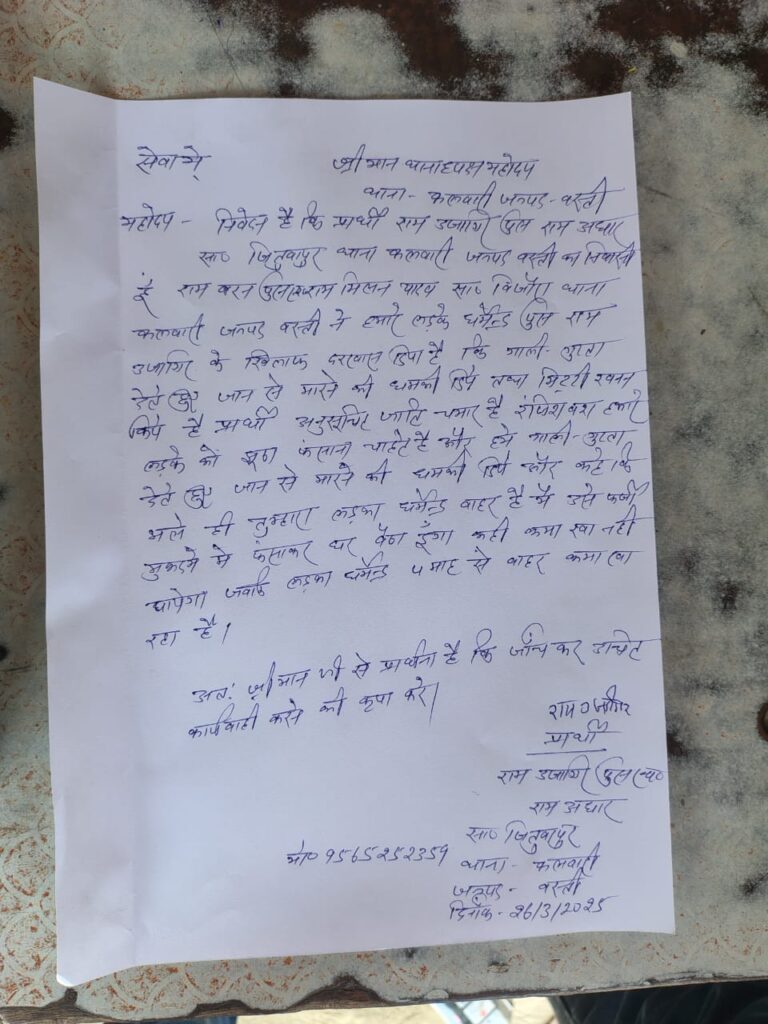 सेवा मे
श्रीमान थानाध्यक्ष महोदय
थाना - कलवारी जनपद - बस्ती
महोदय - निवेदन है कि प्रार्थी राम उजागिर पुत्र राम अधार
सा० जितुवापुर थाना कलवारी जनपद बस्ती का निवासी
हूँ राम बरन पुत्र राम मिलन यादव सा० थाना
कलवारी जनपद बस्ती ने हमारे लड़के धर्मेन्द्र पुत्र राम
उजागिर के खिलाफ दरखास दिया है कि गाली-गुप्ता
देते हुए जान से मारने की धमकी दिये तथा मिट्टी खनन
किये है प्रार्थी अनुसूचित जाति चमार है रंजिश वश हमारे
लड़के को झूठा फंसाना चाहते है और हमे गाली-गुप्ता
देते हुए जान से मारने की धमकी दिये और कहे कि
भले ही तुम्हारा लड़का धर्मेन्द्र बाहर है मै उसे फर्जी
मुकदमे मे फंसाकर घर बैठा दूँगा कही कमा खा नही
पायेगा जबकि लड़का धर्मेन्द्र 4 माह से बाहर कमा खा
रहा है।
अतः श्रीमान जी से प्रार्थना है कि जाँच कर उचित
कार्यवाही करने की कृपा करे।
राम उजागिर
प्रार्थी
राम उजागिर पुत्र स्व०
राम अधार
सा० जितुवापुर
मो० 9565252359 थाना - कलवारी
जनपद - बस्ती
दिनाँक - 26/3/2025